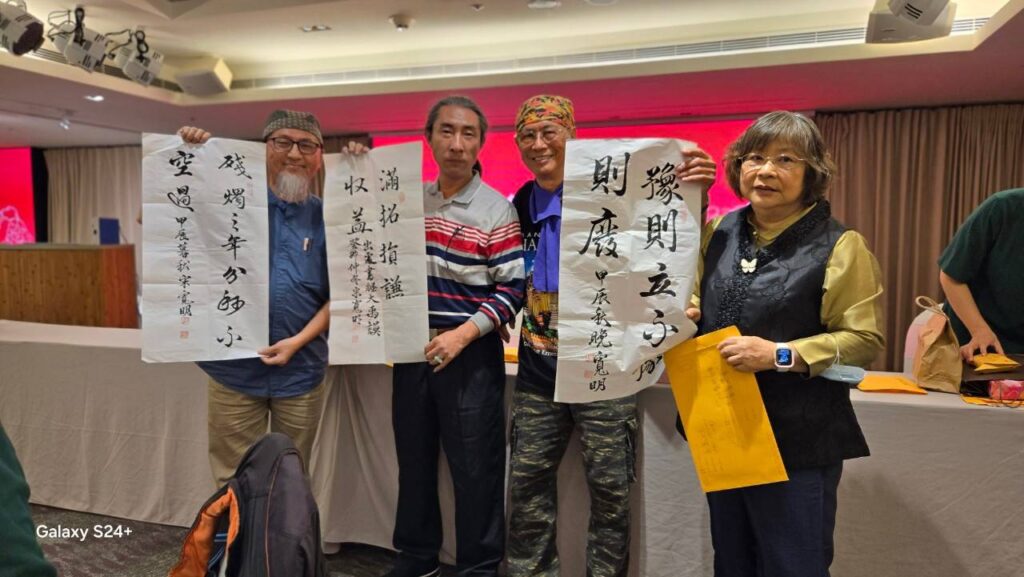 殘燭之年分秒不
空過 甲辰暮秋宋寬明
滿招損謙
収益
出處書經大禹謨
癸卯仲冬宋寬明
豫則立不豫
則廢 甲辰秋晚寬明
Galaxy S24+